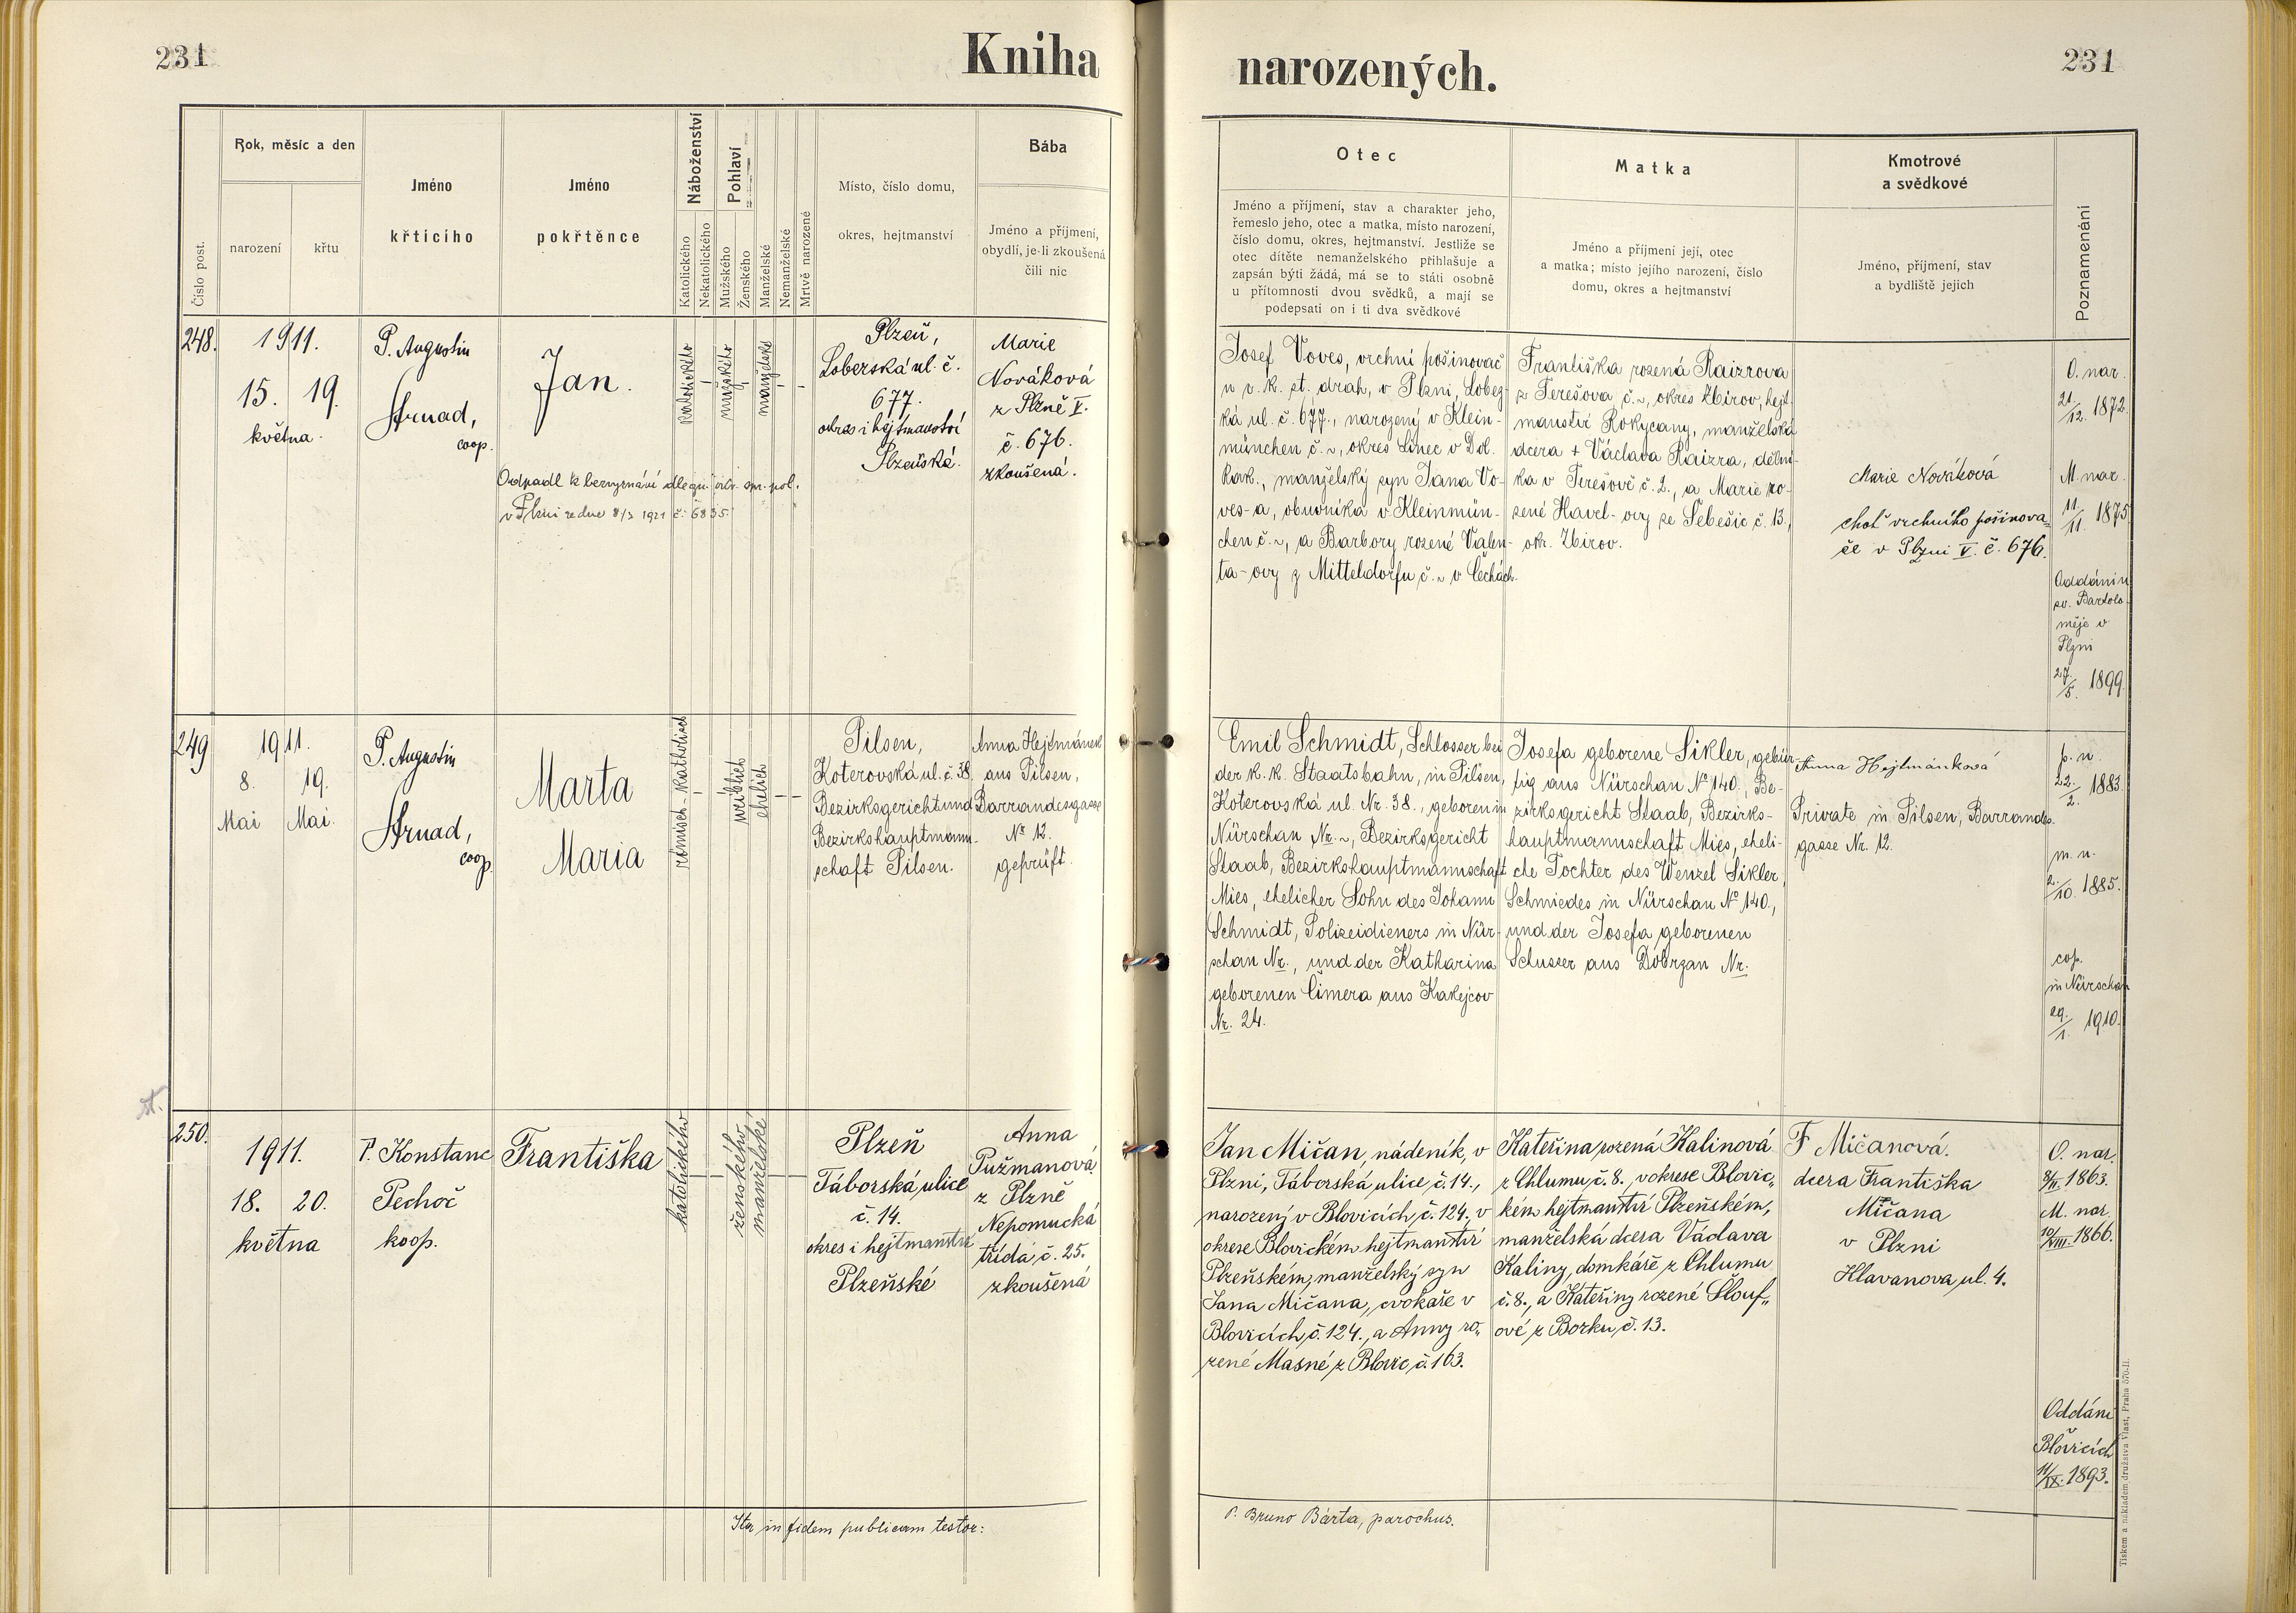 231
Kniha
narozených.
231
Číslo post.
Rok, měsíc a den
narození
křtu
Jméno
křticího
Jméno
pokřtěnce
Náboženství
Katolického
Nekatolického
Pohlaví
Mužského
Ženského
Manželské
Nemanželské
Mrtvě narozené
Místo, číslo domu,
okres, hejtmanství
Bába
Jméno a příjmení,
obydlí, je-li zkoušená
čili nic
Otec
Jméno a příjmení, stav a charakter jeho,
řemeslo jeho, otec a matka, místo narození,
číslo domu, okres, hejtmanství. Jestliže se
otec dítěte nemanželského přihlašuje a
zapsán býti žádá, má se to státi osobně
u přítomnosti dvou svědků, a mají se
podepsati on i ti dva svědkové
Matka
Jméno a příjmení její, otec
a matka; místo jejího narození, číslo
domu, okres a hejtmanství
Kmotrové
a svědkové
Jméno, příjmení, stav
a bydliště jejich
Poznamenání
248.
1911.
15. 19.
května.
P. Augustin
Strnad,
coop.
Jan.
Odpadl k bezvyznání dle ozn. spr. pol.
v Plzni ze dne 8/3 1921 č: 6835
katolického
mužského
manželské
Plzeň,
Loberská ul. č.
677.
okres i hejtmanství
Plzeňská.
Marie
Nováková
z Plzně V.
č. 676.
zkoušená.
Josef Voves, vrchní pošinovač
u c. k. st. drah, v Plzni, Lobez-
ká ul. č. 677., narozený v Klein-
münchen č. ~, okres Linec v Dol.
Rak., manželský syn Jana Vo-
ves-a, obuvníka v Kleinmün-
chen č. ~, a Barbory rozené Valen-
ta-ovy z Mitteldorfu č. ~ v Čechách.
Františka rozená Raizrova
z Terešova č. ~, okres Zbirov, hejt-
manství Rokycany, manželská
dcera + Václava Raizra, dělní-
ka v Terešově č. 2., a Marie ro-
zené Havel-ovy ze Šebešic č. 13,
okr. Zbirov.
Marie Nováková
choť vrchního pošinova-
če v Plzni V. č. 676.
O. nar.
21./12. 1872.
M. nar.
11/11 1875
Oddáni u
sv. Bartolo-
měje v
Plzni
27./5. 1899.
249
1911.
8. 19.
Mai Mai.
P. Augustin
Strnad,
coop.
Marta
Maria
römisch-katholisch
weiblich
ehelich
Pilsen,
Koterovská ul. č. 38,
Bezirksgericht und
Bezirkshauptmann-
schaft Pilsen.
Anna Hejtmánek
aus Pilsen,
Barrandesgasse
No 12.
geprüft.
Emil Schmidt, Schlosser bei
der k. k. Staatsbahn, in Pilsen,
Koterovská ul. Nr. 38., geboren in
Nürschan Nr. ~, Bezirksgericht
Staab, Bezirkshauptmannschaft
Mies, ehelicher Sohn des Johann
Schmidt, Polizeidieners in Nür-
schan Nr., und der Katharina
geborenen Čimera aus Kakejcov
Nr. 24.
Josefa geborene Sikler, gebür-
tig aus Nürschan No 140., Be-
zirksgericht Staab, Bezirks-
hauptmannschaft Mies, eheli-
che Tochter des Wenzel Sikler,
Schmiedes in Nürschan No 140.,
und der Josefa geborenen
Schusser aus Dobrzan Nr.
Anna Hejtmánková
Private in Pilsen, Barrandes-
gasse Nr. 12.
p. n.
22./2. 1883
m. n.
2./10. 1885.
cop.
in Nürschan
29./1. 1910.
250.
1911.
18. 20.
května
P. Konstanc
Pechoč
koop.
Františka
katolického
ženského
manželské
Plzeň
Táborská ulice
č. 14.
okres i hejtmanství
Plzeňské
Anna
Pužmanová
z Plzně
Nepomucká
třída č. 25.
zkoušená
Jan Mičan, nádeník, v
Plzni, Táborská ulice, č. 14.,
narozený v Blovicích, č. 124. v
okrese Blovickém hejtmanství
Plzeňském, manželský syn
Jana Mičana, cvokaře v
Blovicích, č. 124., a Anny ro-
zené Masné z Blovic, č. 163.
Kateřina rozená Kalinová
z Chlumu, č. 8. v okrese Blovic-
kém hejtmanství Plzeňském,
manželská dcera Václava
Kaliny, domkáře z Chlumu
č. 8., a Kateřiny rozené Šlouf-
ové z Borku, č. 13.
F Mičanová.
dcera Františka
Mičana
v Plzni
Hlavanova ul. 4.
O. nar.
8/II. 1863.
M. nar.
10/VIII. 1866.
Oddáni
Blovicích
11/IX. 1893.
Ita in fidem publicam testor:
P. Bruno Bárta, parochus.
Tiskem a nákladem družstva Vlast, Praha 570-II.